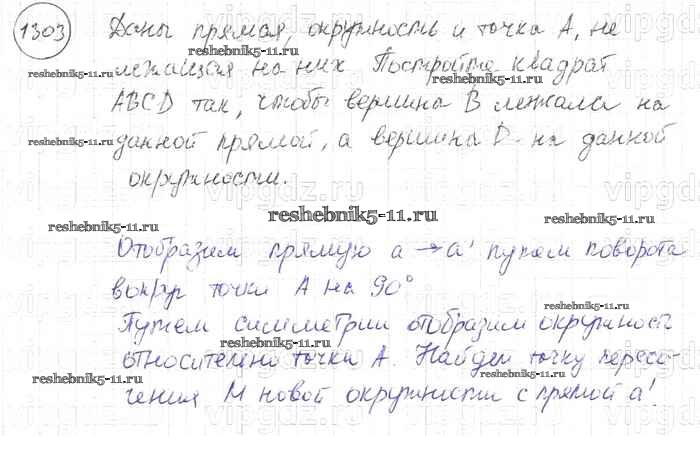 1303 Даны прямая, окружность и точка А, не
лежащая на них Постройте квадрат
ABCD так, чтобы вершина В лежала на
данной прямой, а вершина D - на данной
окружности.
Отобразим прямую a → a' путем поворота
вокруг точки А на 90°
Путем симметрии отобразим окружность
относительно точки А. Найдем точку пересе-
чения М новой окружности с прямой a'.
reshebnik5-11.ru
reshebnik5-11.ru
reshebnik5-11.ru
reshebnik5-11.ru
reshebnik5-11.ru
reshebnik5-11.ru
reshebnik5-11.ru
reshebnik5-11.ru
reshebnik5-11.ru
reshebnik5-11.ru
vipgdz.ru